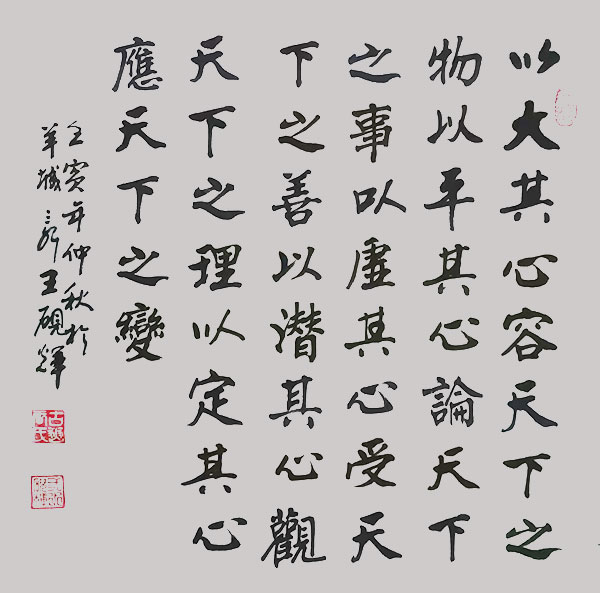 以大其心容天下之
物以平其心論天下
之事以虛其心受天
下之善以潛其心觀
天下之理以定其心
應天下之變
壬寅年仲秋於
羊城王硯輝